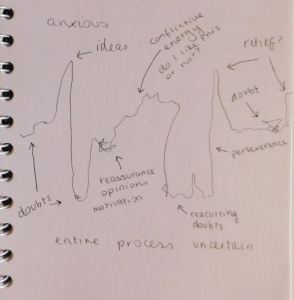 anxious
ideas
conflictive
energy
do I like this
or not?
relief?
doubt
doubts
reassurance
opinions
motivation
perseverance
reacurring
doubts
entire process uncertain